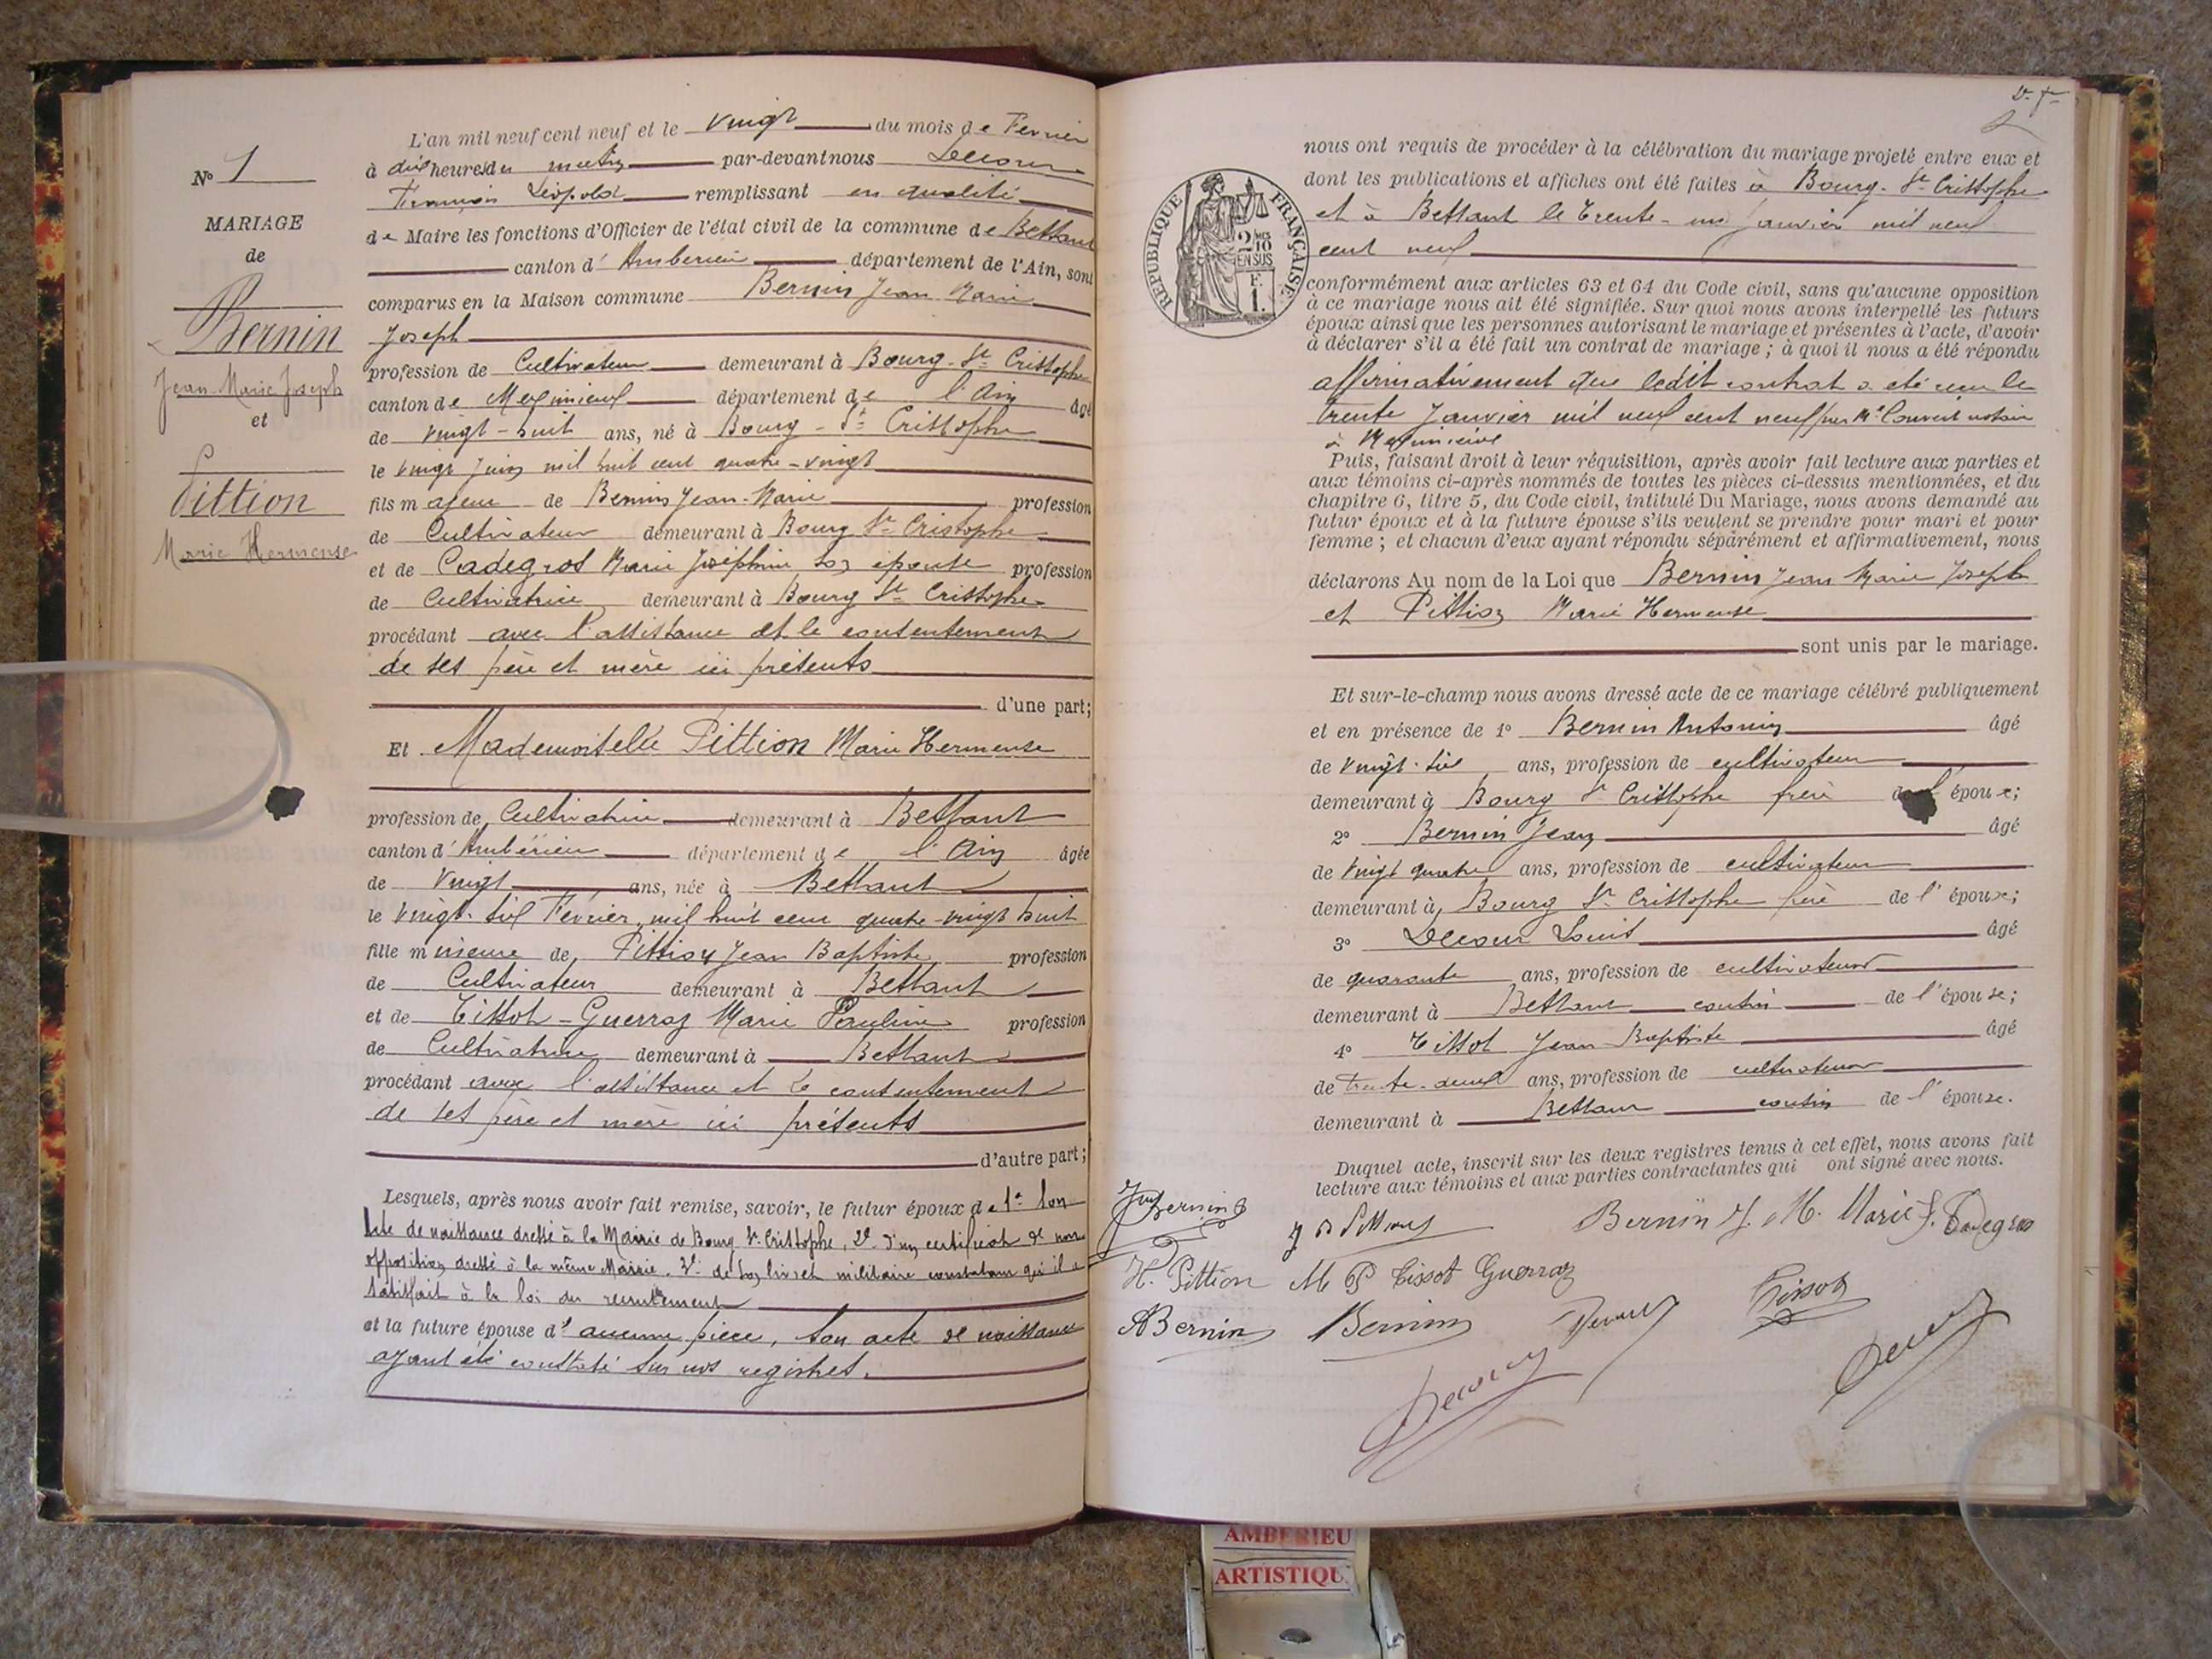 N° 1
MARIAGE
de
Bernin
Jean Marie Joseph
et
Pittion
Marie Hermense
L'an mil neuf cent neuf et le vingt du mois de Fevrier
à dix heures du matin par-devant nous Decour
François Léopold remplissant en qualité
de Maire les fonctions d'Officier de l'état civil de la commune de Bettant
canton d' Ambérieu département de l'Ain, sont
comparus en la Maison commune Bernin Jean Marie
Joseph
profession de Cultivateur demeurant à Bourg-St Cristophe
canton de Meximieux département de l'Ain âgé
de vingt-huit ans, né à Bourg-St Cristophe
le vingt juin mil huit cent quatre-vingt
fils majeur de Bernin Jean-Marie profession
de Cultivateur demeurant à Bourg St Cristophe
et de Cadegros Marie Joséphine son épouse profession
de Cultivatrice demeurant à Bourg St Cristophe
procédant avec l'assistance et le consentement
de ses père et mère ici présents
d'une part;
Et Mademoiselle Pittion Marie Hermense
profession de Cultivatrice demeurant à Bettant
canton d' Ambérieu département de l'Ain âgée
de Vingt ans, née à Bettant
le vingt-six Février mil huit cent quatre-vingt huit
fille mineure de Pittion Jean Baptiste profession
de Cultivateur demeurant à Bettant
et de Tissot-Guerraz Marie Pauline profession
de Cultivatrice demeurant à Bettant
procédant avec l'assistance et le consentement
de ses père et mère ici présents
d'autre part;
Lesquels, après nous avoir fait remise, savoir, le futur époux de 1° son
acte de naissance dressé à la Mairie de Bourg St Cristophe, 2° d'un certificat de non
opposition dressé à la même Mairie. 3° de son livret militaire constatant qu'il a
satisfait à la loi du recrutement
et la future épouse d' aucune pièce, son acte de naissance
ayant été constaté sur nos registres.
2
nous ont requis de procéder à la célébration du mariage projeté entre eux et
dont les publications et affiches ont été faites à Bourg-St Cristophe
et à Bettant le trente-un janvier mil neuf
cent neuf
RÉPUBLIQUE FRANÇAISE
2 MES
10
EN SUS
F.
1.
conformément aux articles 63 et 64 du Code civil, sans qu'aucune opposition
à ce mariage nous ait été signifiée. Sur quoi nous avons interpellé les futurs
époux ainsi que les personnes autorisant le mariage et présentes à l'acte, d'avoir
à déclarer s'il a été fait un contrat de mariage ; à quoi il nous a été répondu
affirmativement que ledit contrat a été reçu le
trente Janvier mil neuf cent neuf par Me Convert notaire
à Meximieux
Puis, faisant droit à leur réquisition, après avoir fait lecture aux parties et
aux témoins ci-après nommés de toutes les pièces ci-dessus mentionnées, et du
chapitre 6, titre 5, du Code civil, intitulé Du Mariage, nous avons demandé au
futur époux et à la future épouse s'ils veulent se prendre pour mari et pour
femme ; et chacun d'eux ayant répondu séparément et affirmativement, nous
déclarons Au nom de la Loi que Bernin Jean Marie Joseph
et Pittion Marie Hermense
sont unis par le mariage.
Et sur-le-champ nous avons dressé acte de ce mariage célébré publiquement
et en présence de 1° Bernin Antonin âgé
de vingt-six ans, profession de cultivateur
demeurant à Bourg St Cristophe frère de l' époux;
2° Bernin Jean âgé
de vingt quatre ans, profession de cultivateur
demeurant à Bourg St Cristophe frère de l' époux;
3° Decour Louis âgé
de quarante ans, profession de cultivateur
demeurant à Bettant cousin de l' épouse;
4° Tissot Jean-Baptiste âgé
de trente-deux ans, profession de cultivateur
demeurant à Bettant cousin de l' épouse.
Duquel acte, inscrit sur les deux registres tenus à cet effet, nous avons fait
lecture aux témoins et aux parties contractantes qui ont signé avec nous.
Bernin J B Pittion Bernin J. M. Marie J. Cadegros
H. Pittion M P Tissot Guerraz Tissot
A Bernin Bernin Decour
Decour Decour
AMBERIEU
ARTISTIQU